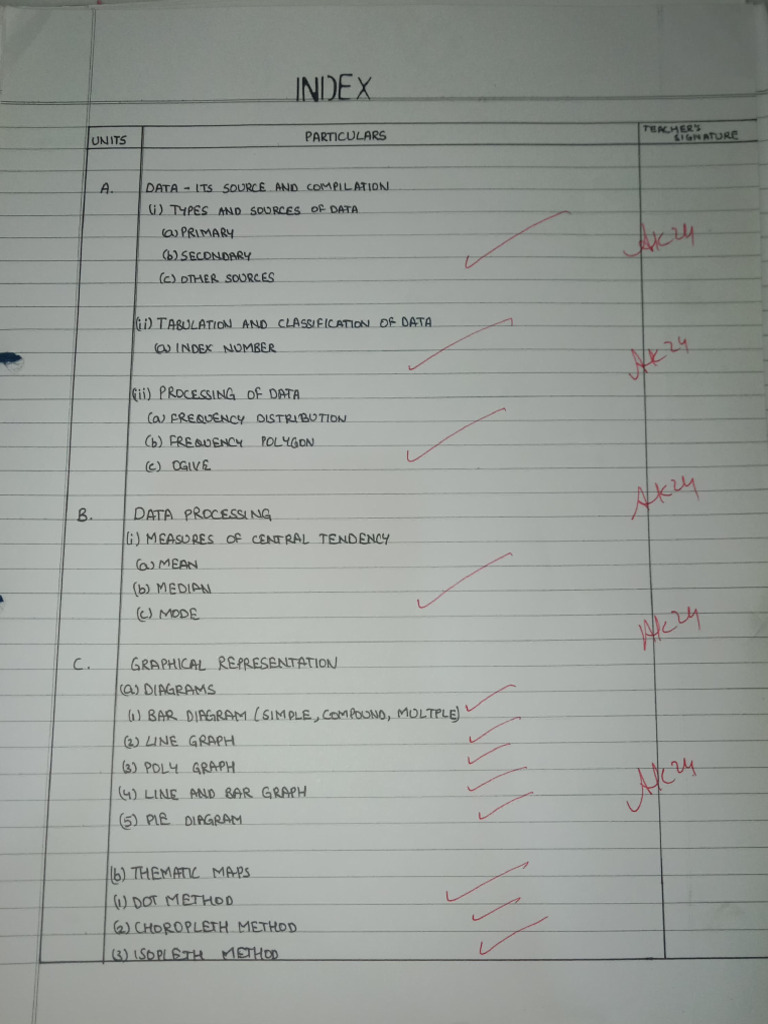 INDEX
UNITS PARTICULARS TEACHER'S SIGNATURE
A. DATA - ITS SOURCE AND COMPILATION
(i) TYPES AND SOURCES OF DATA
(a) PRIMARY
(b) SECONDARY
(c) OTHER SOURCES
(ii) TABULATION AND CLASSIFICATION OF DATA
(a) INDEX NUMBER
(iii) PROCESSING OF DATA
(a) FREQUENCY DISTRIBUTION
(b) FREQUENCY POLYGON
(c) OGIVE
B. DATA PROCESSING
(i) MEASURES OF CENTRAL TENDENCY
(a) MEAN
(b) MEDIAN
(c) MODE
C. GRAPHICAL REPRESENTATION
(a) DIAGRAMS
(1) BAR DIAGRAM (SIMPLE, COMPOUND, MULTPLE)
(2) LINE GRAPH
(3) POLY GRAPH
(4) LINE AND BAR GRAPH
(5) PIE DIAGRAM
(b) THEMATIC MAPS
(1) DOT METHOD
(2) CHOROPLETH METHOD
(3) ISOPLETH METHOD